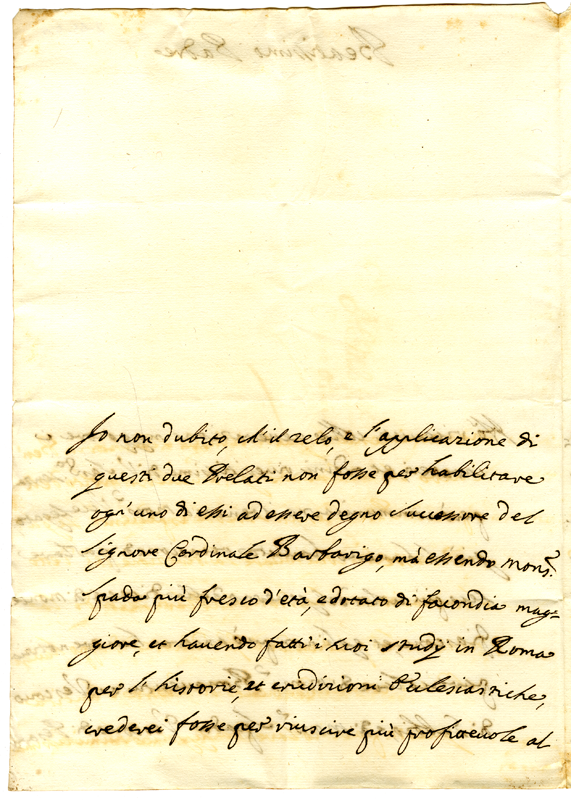 Io non dubito, ch'il zelo, e l'applicazione di
questi due Prelati non fosse per habilitare
ogn'uno di essi ad essere degno successore del
Signore Cardinale Barbarigo, mà essendo Mons.r
Spada più fresco d'età, e dotato di facondia mag=
giore, et hauendo fatti i suoi studij in Roma
per l'historie, et erudizioni Eclesiastiche,
crederei fosse per riuscire più profiteuole al